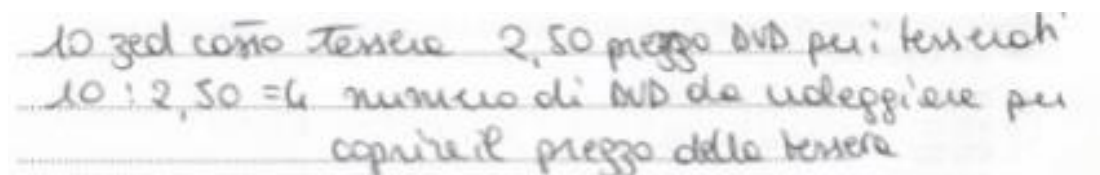 10 zed costo tessera 2,50 prezzo DVD per i tesserati
10 : 2,50 = 4 numero di DVD da noleggiare per
coprire il prezzo della tessera